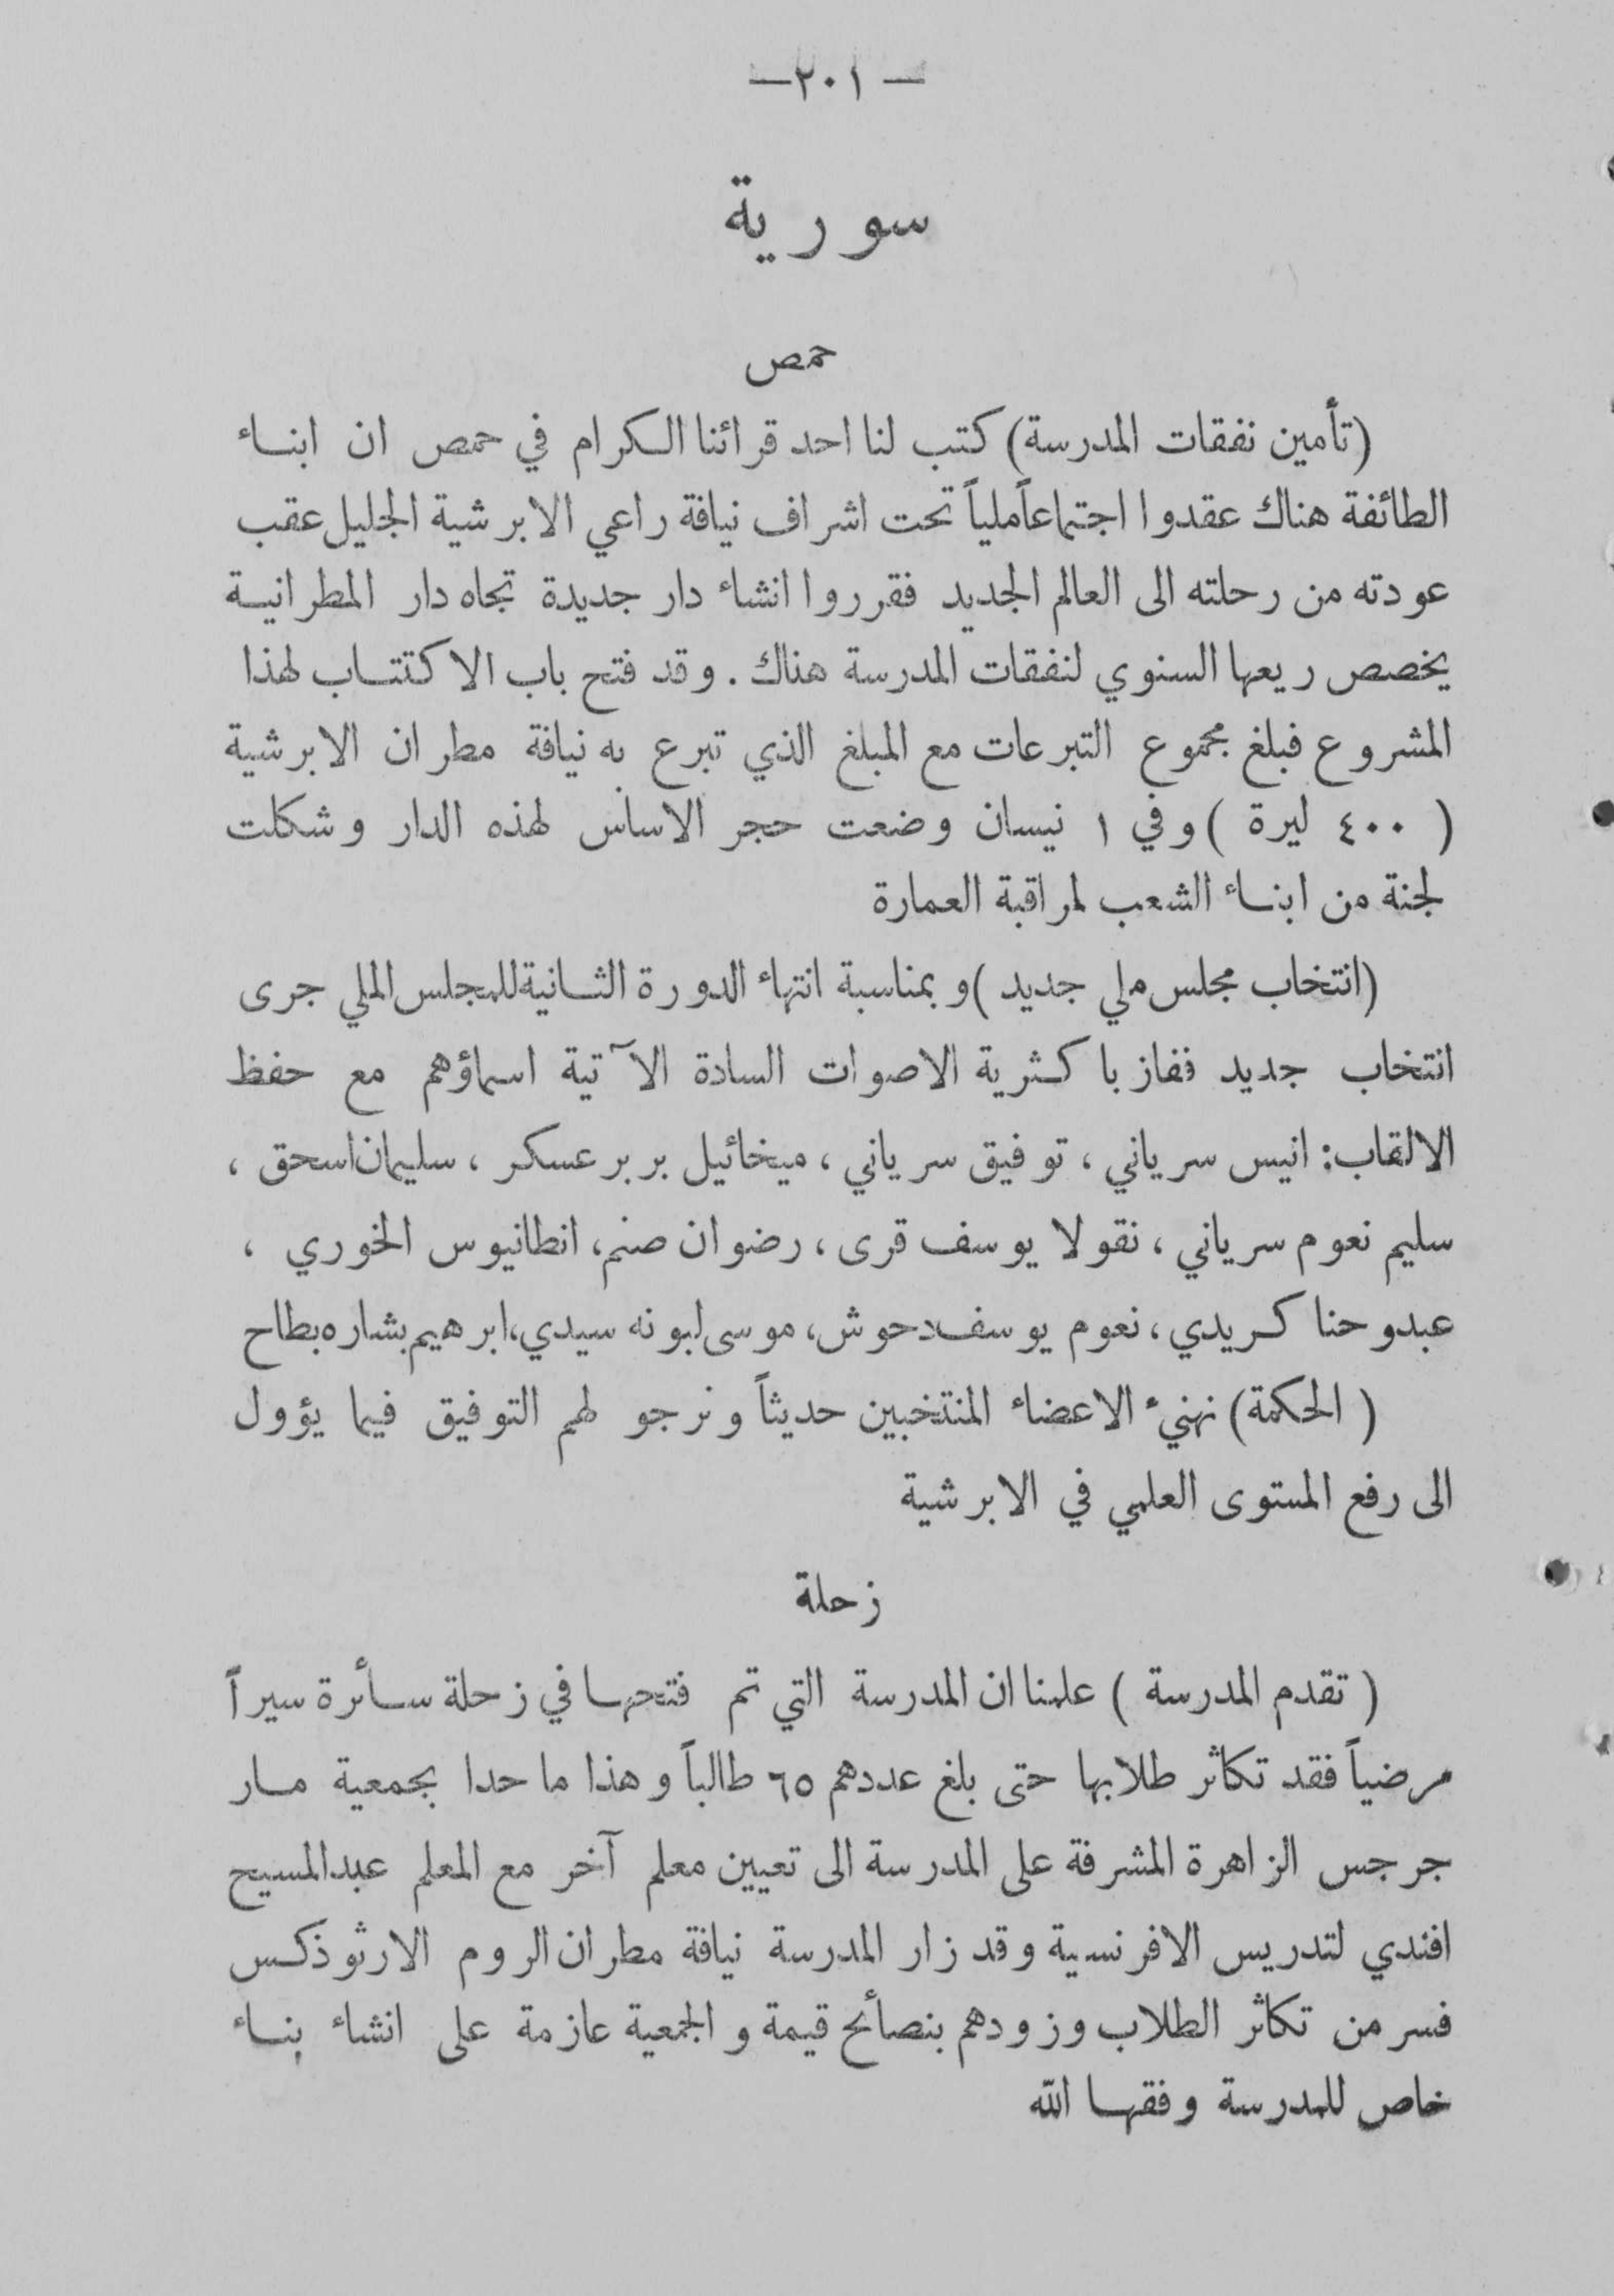 — ٢٠١ —
سورية
حمص
(تأمين نفقات المدرسة) كتب لنا احد قرائنا الكرام في حمص ان ابناء
الطائفة هناك عقدوا اجتماعاً ملياً تحت اشراف نيافة راعي الابرشية الجليل عقب
عودته من رحلته الى العالم الجديد فقرروا انشاء دار جديدة تجاه دار المطرانية
يخصص ريعها السنوي لنفقات المدرسة هناك . وقد فتح باب الاكتتاب لهذا
المشروع فبلغ مجموع التبرعات مع المبلغ الذي تبرع به نيافة مطران الابرشية
( ٤٠٠ ليرة ) وفي ١ نيسان وضعت حجر الاساس لهذه الدار وشكلت
لجنة من ابناء الشعب لمراقبة العمارة
(انتخاب مجلس ملي جديد ) وبمناسبة انتهاء الدورة الثانية للمجلس الملي جرى
انتخاب جديد ففاز باكثرية الاصوات السادة الآتية اسماؤهم مع حفظ
الالقاب: انيس سرياني ، توفيق سرياني ، ميخائيل بربر عسكر ، سليمان اسحق ،
سليم نعوم سرياني ، نقولا يوسف قرى ، رضوان صنم، انطانيوس الخوري ،
عبدو حنا كريدي ، نعوم يوسف دحوش، موسى لبونه سيدي، ابرهيم بشاره بطاح
( الحكمة) نهنيء الاعضاء المنتخبين حديثاً ونرجو لهم التوفيق فيما يؤول
الى رفع المستوى العلمي في الابرشية
زحلة
( تقدم المدرسة ) علمنا ان المدرسة التي تم فتحها في زحلة سأئرة سيراً
مرضياً فقد تكاثر طلابها حتى بلغ عددهم ٦٥ طالباً وهذا ما حدا بجمعية مار
جرجس الزاهرة المشرفة على المدرسة الى تعيين معلم آخر مع المعلم عبدالمسيح
افندي لتدريس الافرنسية وقد زار المدرسة نيافة مطران الروم الارثوذكس
فسر من تكاثر الطلاب وزودهم بنصأئح قيمة والجمعية عازمة على انشاء بناء
خاص للمدرسة وفقها الله